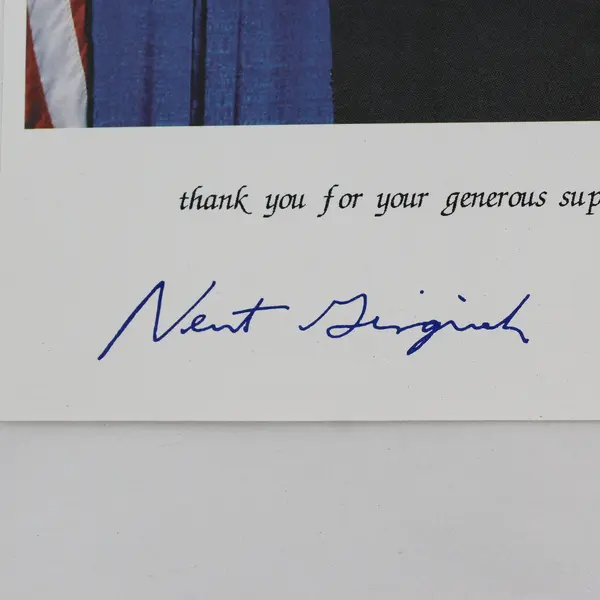 thank you for your generous sup
Newt Gingrich